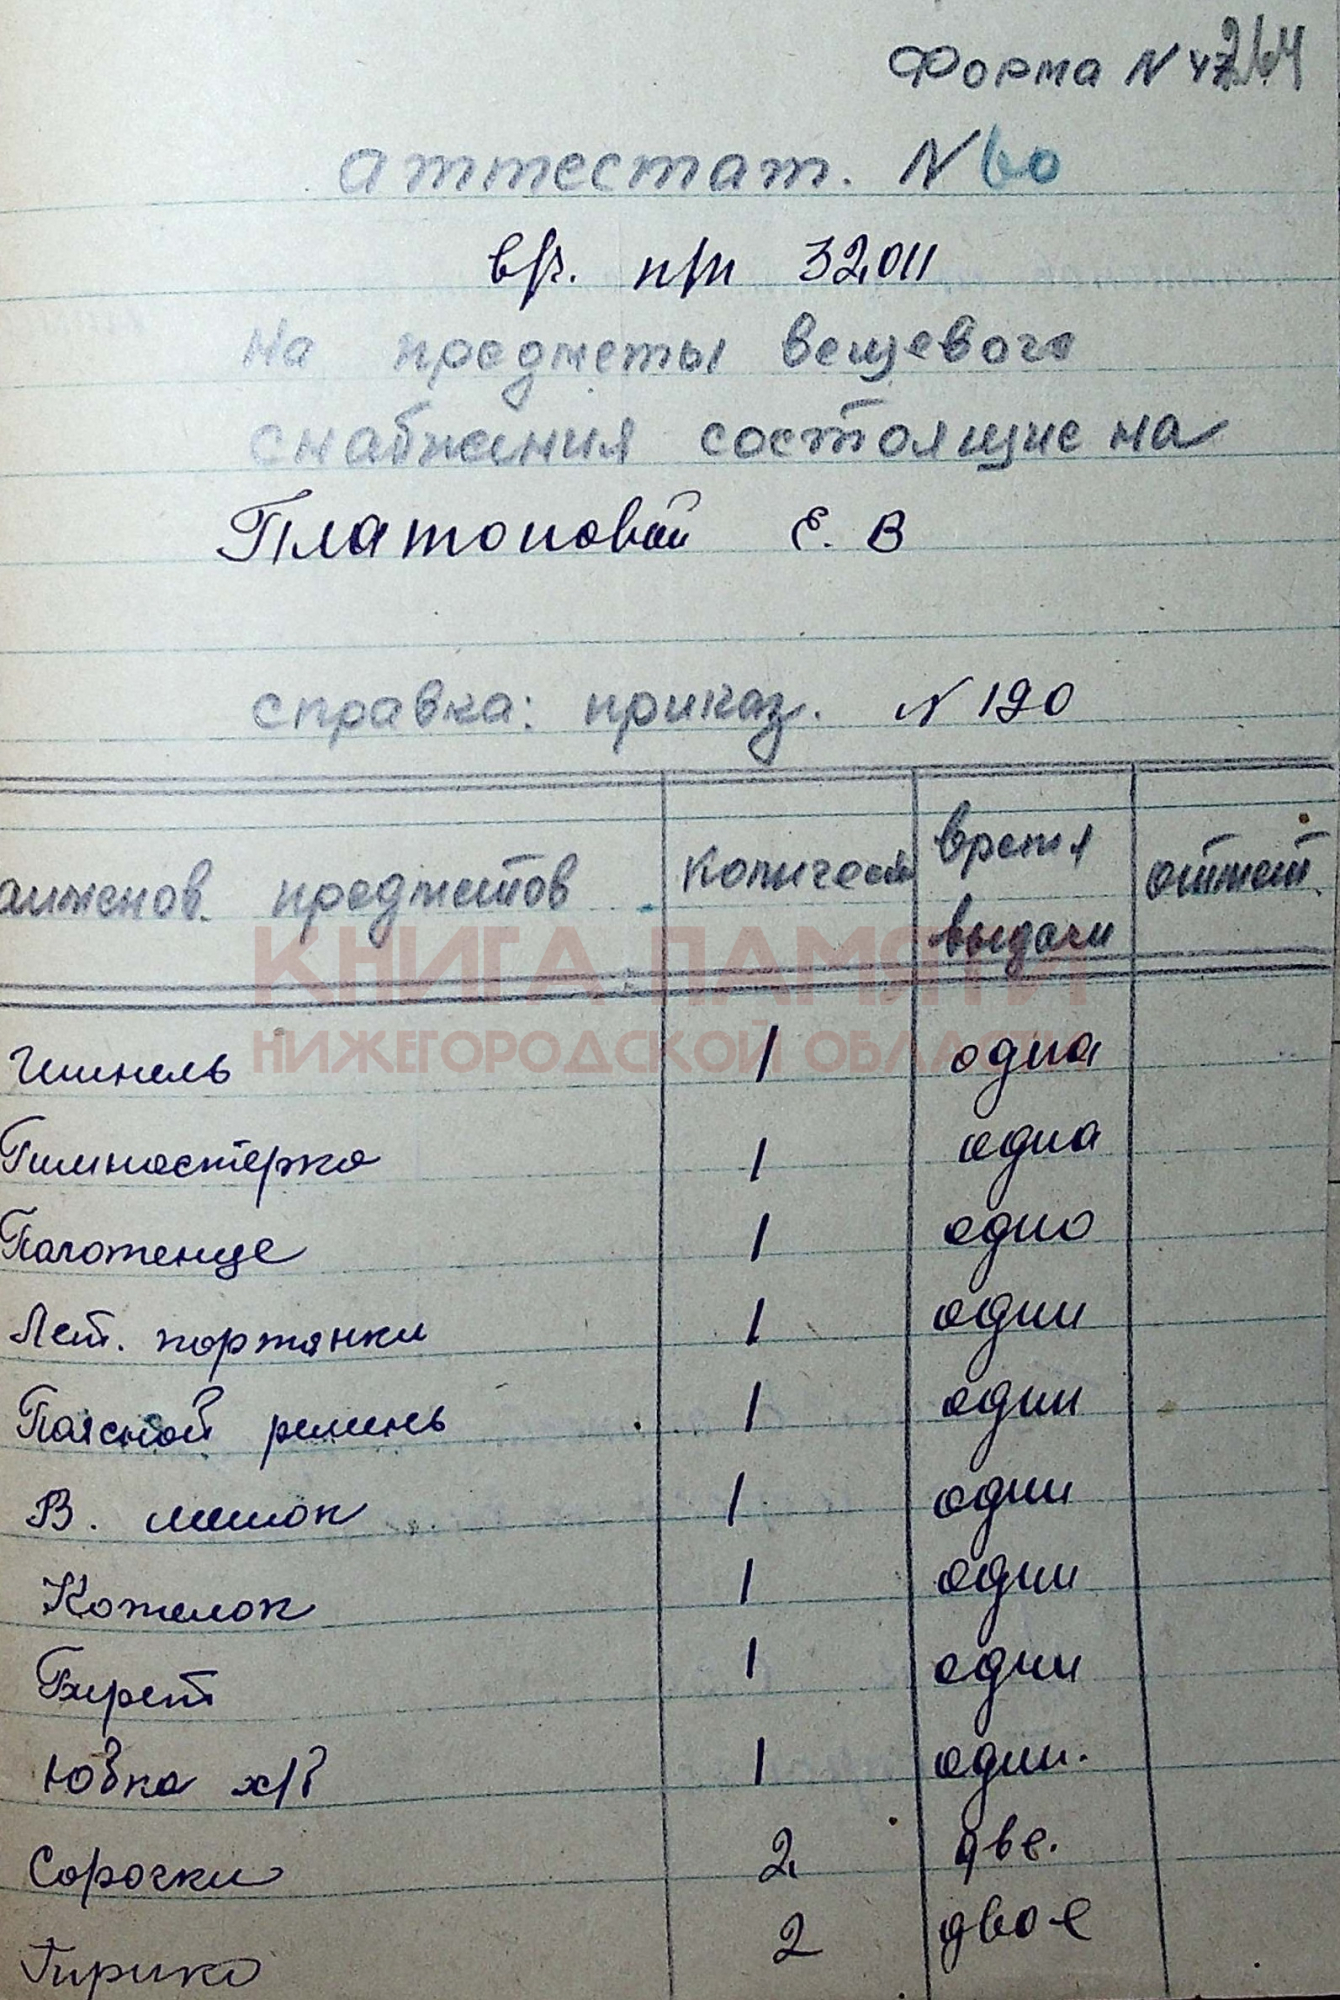 Форма N 47
264
аттестат. N 60
в/ч. п/п 32011
На предметы вещевого
снабжения состоящие на
Платоновой Е. В
справка: приказ. N 190
аименов. предметов Количеств время выдачи отмет.
КНИГА ПАМЯТИ
НИЖЕГОРОДСКОЙ ОБЛАСТИ
Шинель 1 одна
Гимнастерка 1 одна
Полотенце 1 одно
Лет. портянки 1 один
Поясной ремень 1 один
В. мешок 1 один
Котелок 1 один
Бирет 1 один
Юбка х/б 1 один.
Сорочки 2 две.
Тирико 2 двое